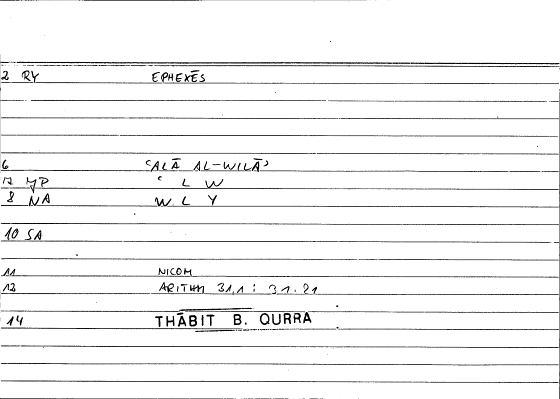 2 RY EPHEXĒS
6 ʿALĀ AL-WILĀʾ
12 YP ʿ L W
8 NA W L Y
10 SA
11 NICOM
13 ARITHM 31,1 : 31.21
14 THĀBIT B. QURRA